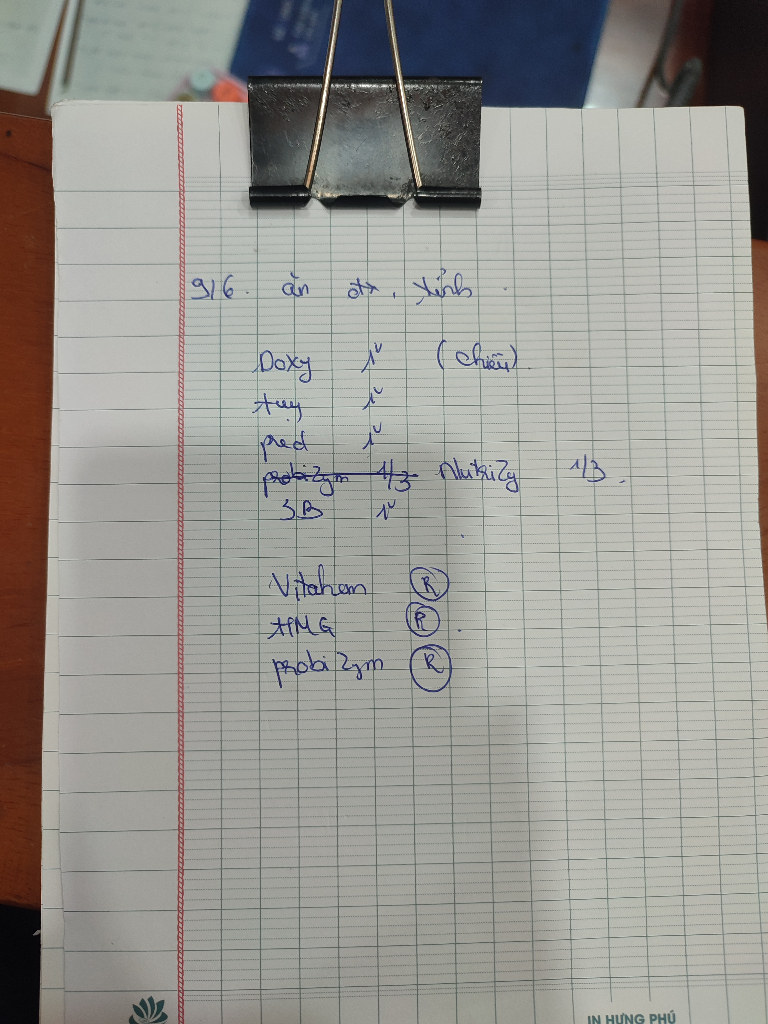 9/6. ăn đtx, tỉnh.
Doxy 1v (chiều).
tuỵ 1v
pred 1v
probizym 1/3 Nutrizy 1/3.
3B 1v
Vitahem R
APMG R.
probizym R
IN HƯNG PHÚ